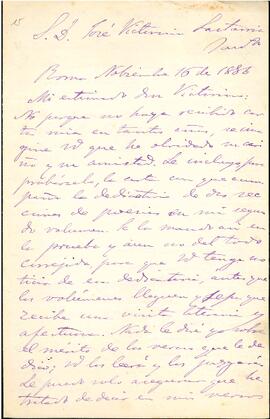 15
S. D. José Victorino Lastarria
Roma Nobiembre 16 de 1886
Mi estimado don Victorino:
No porque no haya recibido car
ta mia en tantos años, se ima
jine Vd que he olvidado su cari
ño y su amistad. Le incluyo para
probárselo, la carta con que acom
paño la dedicatoria de dos sec
ciones de poesias en mi segun
do volumen. Se la mando así en
la prueba y aun no del todo
correjida para que Vd tenga no
ticia de esa dedicatoria, antes que
los volúmenes lleguen y sepa que
recibe una visita literaria y
afectuosa. Nada le diré yo sobre
el mérito de los versos que le de
dico; Vd los leerá y los juzgará.
Le puedo solo asegurar que he
tratado de decir en mis versos